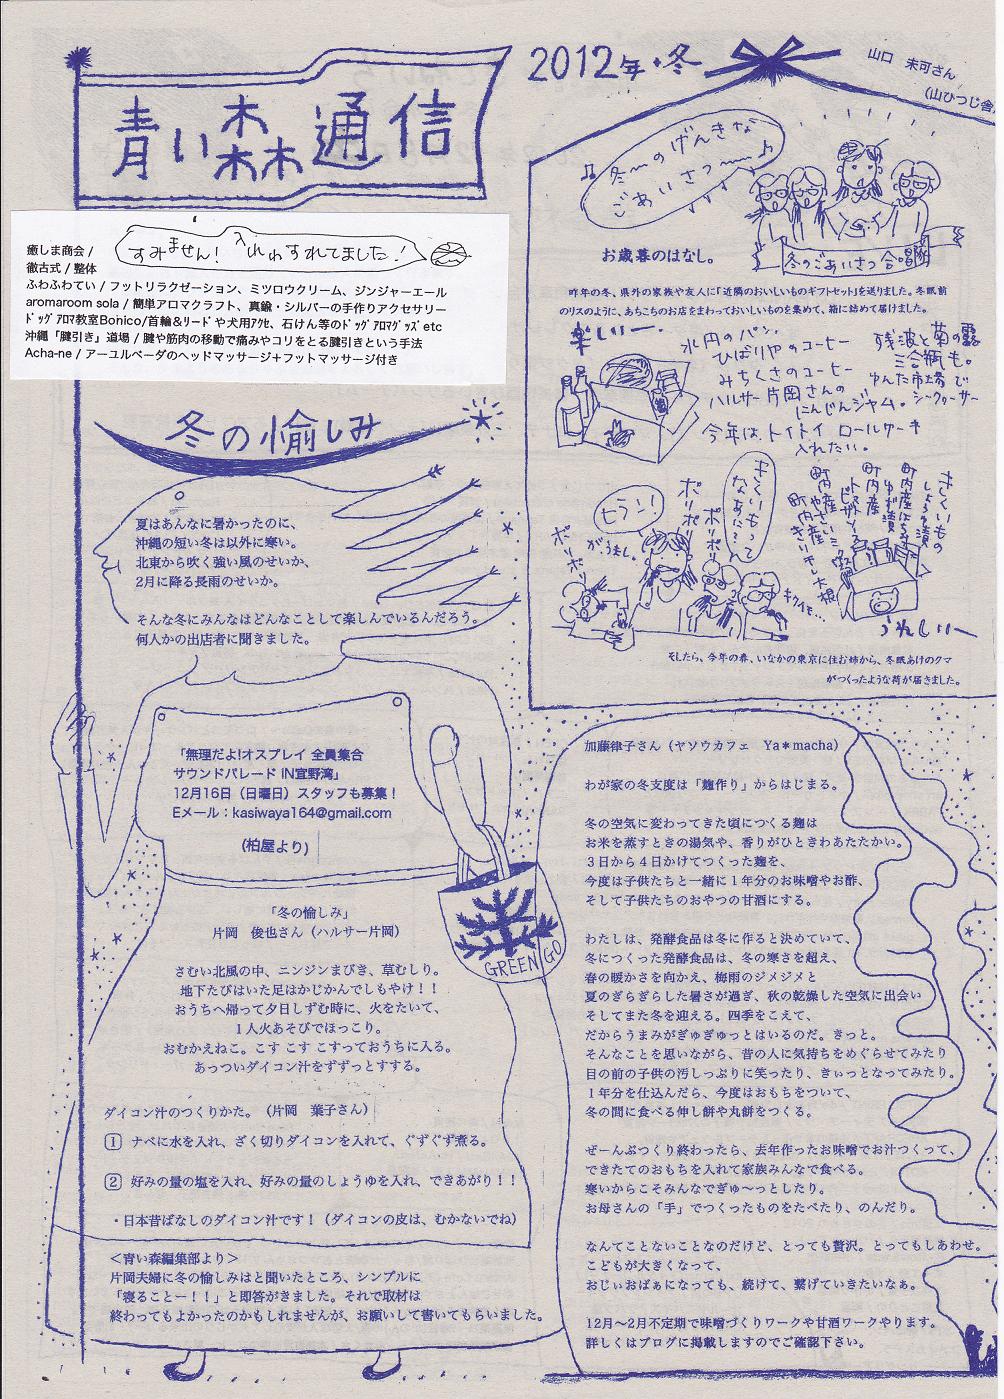 青い森通信
2012年・冬
山口　未可さん
(山ひつじ舎)
すみません! 入れわすれてました!
癒しま商会 /
徹古式 / 整体
ふわふわてい / フットリラクゼーション、ミツロウクリーム、ジンジャーエール
aromaroom sola / 簡単アロマクラフト、真鍮・シルバーの手作りアクセサリー
ﾄﾞｯｸﾞｱﾛﾏ教室Bonico/首輪&ﾘｰﾄﾞや犬用ｱｸｾ、石けん等のﾄﾞｯｸﾞｱﾛﾏｸﾞｯｽﾞetc
沖縄「腱引き」道場 / 腱や筋肉の移動で痛みやコリをとる腱引きという手法
Acha-ne / アーユルベーダのヘッドマッサージ+フットマッサージ付き
冬の愉しみ
夏はあんなに暑かったのに、
沖縄の短い冬は以外に寒い。
北東から吹く強い風のせいか、
2月に降る長雨のせいか。
そんな冬にみんなはどんなことして楽しんでいるんだろう。
何人かの出店者に聞きました。
「無理だよ!オスプレイ 全員集合
サウンドパレード IN宜野湾」
12月16日（日曜日）スタッフも募集！
Eメール：kasiwaya164@gmail.com
(柏屋より)
GREEN GO
「冬の愉しみ」
片岡　俊也さん（ハルサー片岡）
さむい北風の中、ニンジンまびき、草むしり。
地下たびはいた足はかじかんでしもやけ！！
おうちへ帰って夕日しずむ時に、火をたいて、
1人火あそびでほっこり。
おむかえねこ。こす こす こすっておうちに入る。
あっついダイコン汁をずずっとすする。
ダイコン汁のつくりかた。（片岡　葉子さん）
1 ナベに水を入れ、ざく切りダイコンを入れて、ぐずぐず煮る。
2 好みの量の塩を入れ、好みの量のしょうゆを入れ、できあがり！！
・日本昔ばなしのダイコン汁です！（ダイコンの皮は、むかないでね）
＜青い森編集部より＞
片岡夫婦に冬の愉しみはと聞いたところ、シンプルに
「寝ることー！！」と即答がきました。それで取材は
終わってもよかったのかもしれませんが、お願いして書いてもらいました。
冬〜のげんきな
ごあいさつ〜〜♪
冬のごあいさつ合唱隊
お歳暮のはなし。
昨年の冬、県外の家族や友人に「近隣のおいしいものギフトセット」を送りました。冬眠前
のリスのように、あちこちのお店をまわっておいしいものを集めて、箱に詰めて届けました。
楽しいー
水円のパン、
ひばりやのコーヒー
みちくさのコーヒー
ハルサー片岡さんの
にんじんジャム。
残波と菊の露
三合瓶も。
ゆんた市場で
シークヮーサー
今年は、トイトイ ロールケーキ
入れたい。
ポリポリ
ポリポリ
ポリポリ
うれしいー
そしたら、今年の春、いなかの東京に住む姉から、冬眠あけのクマ
がつくったような荷が届きました。
加藤律子さん（ヤソウカフェ　Ya＊macha）
わが家の冬支度は「麹作り」からはじまる。
冬の空気に変わってきた頃につくる麹は
お米を蒸すときの湯気や、香りがひときわあたたかい。
３日から４日かけてつくった麹を、
今度は子供たちと一緒に１年分のお味噌やお酢、
そして子供たちのおやつの甘酒にする。
わたしは、発酵食品は冬に作ると決めていて、
冬につくった発酵食品は、冬の寒さを超え、
春の暖かさを向かえ、梅雨のジメジメと
夏のぎらぎらした暑さが過ぎ、秋の乾燥した空気に出会い
そしてまた冬を迎える。四季をこえて、
だからうまみがぎゅぎゅっとはいるのだ。きっと。
そんなことを思いながら、昔の人に気持ちをめぐらせてみたり
目の前の子供の汚しっぷりに笑ったり、きぃっとなってみたり。
１年分を仕込んだら、今度はおもちをついて、
冬の間に食べる伸し餅や丸餅をつくる。
ぜーんぶつくり終わったら、去年作ったお味噌でお汁つくって、
できたてのおもちを入れて家族みんなで食べる。
寒いからこそみんなでぎゅ〜っとしたり。
お母さんの「手」でつくったものをたべたり、のんだり。
なんてことないことなのだけど、とっても贅沢。とってもしあわせ。
こどもが大きくなって、
おじぃおばぁになっても、続けて、繋げていきたいなぁ。
12月〜2月不定期で味噌づくりワークや甘酒ワークやります。
詳しくはブログに掲載しますのでご確認下さい。